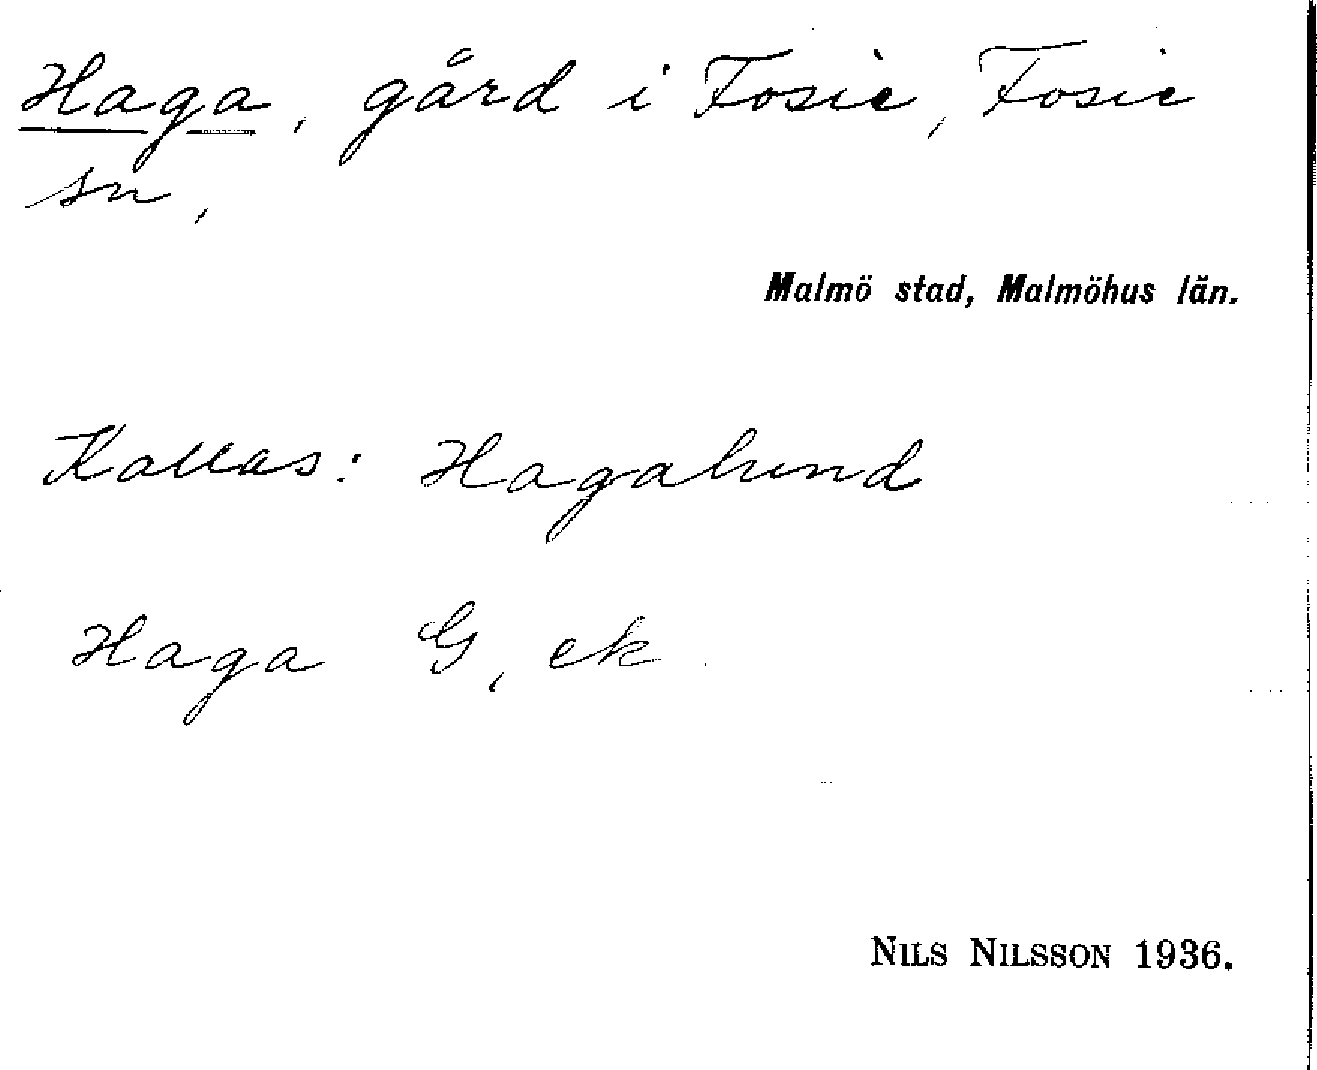 Haga, gård i Fosie, Fosie
sn,
Malmö stad, Malmöhus län.
Kallas: Hagalund
Haga G, ek
NILS NILSSON 1936.